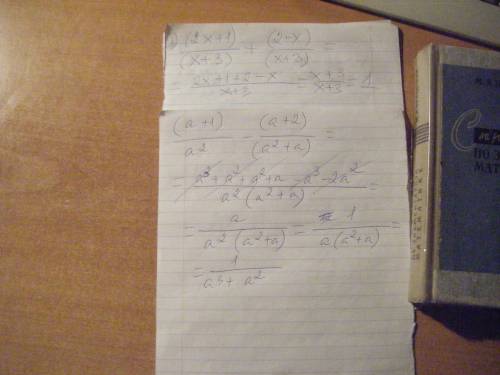 (2x+1)/(x+3) + (2-x)/(x+3) =
= (2x+1+2-x)/(x+3) = (x+3)/(x+3) = 1
(a+1)/a² - (a+2)/(a²+a) =
= (a³+a²+a²+a-a³-2a²)/(a²(a²+a)) =
= a/(a²(a²+a)) = 1/(a(a²+a)) =
= 1/(a3+a²)